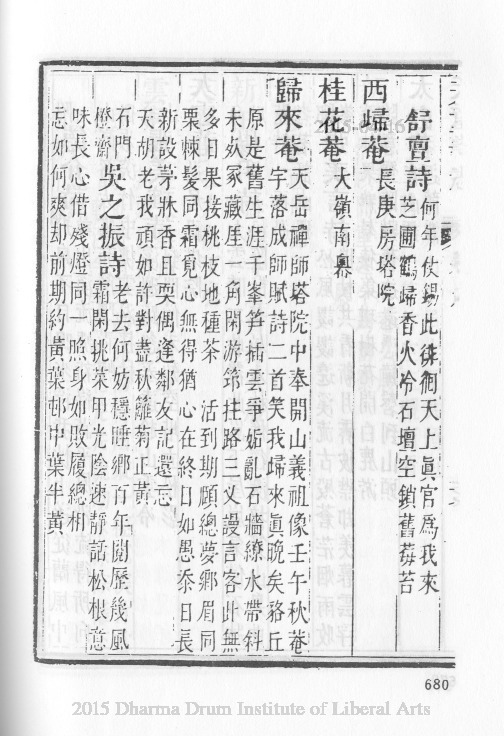 舒亶詩何年仗錫此徘徊天上眞官爲我來
芝圃鶴歸香火冷石壇空鎖舊莓苔
西歸菴長庚房塔院
桂花菴大嶺南麓
歸來菴天岳禪師塔院中奉開山義祖像壬午秋菴
宇落成師賦詩二首笑我歸來眞晚矣狢丘
原是舊生涯千峯笋插雲爭妬亂石牆繚水帶斜
未欸冢藏厓一角閑游筇拄路三丈謾言客此無
多日果接桃枝地種茶 活到期頤總夢鄉眉同
栗棘髮同霜覓心無得猶 心在終日如愚忝日長
新設茅牀香且耎偶逢鄰友記還忘
天胡老我頑如許對盡秋籬菊正黃
石門吳之振詩老去何妨穩睡鄉百年閱歷幾風
櫺齋霜閑挑菜甲光陰速靜話松根意
味長心借殘燈同一照身如敗履總相
忘如何爽却前期約黃葉邨中葉半黃
680
2015 Dharma Drum Institute of Liberal Arts